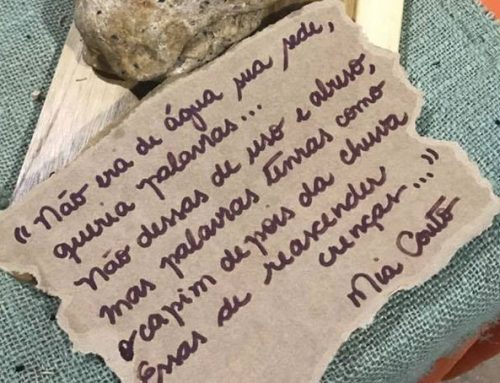 “Não era de água sua sede,
queria palavras...
Não dessas de uso e abuso,
mas palavras tenras como
o capim depois da chuva
Essas de reascender
crenças...”
Mia Couto